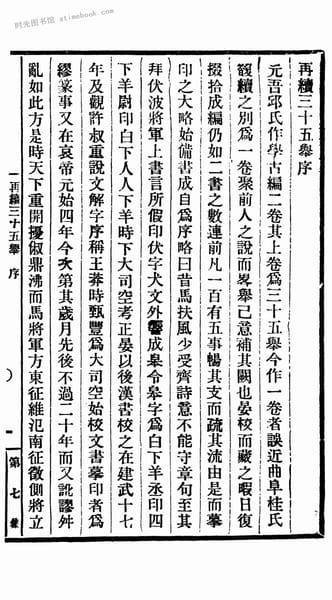 时光图书馆 atimebook.com
再續三十五舉序
元吾邱氏作學古編二卷其上卷爲三十五舉今作一卷者誤近曲阜桂氏
續之別爲一卷聚前人之說而畧舉己意補其闕也晏校而藏之暇日復
掇拾成編仍如二書之數連前凡一百有五事暢其支而疏其流由是而摹
印之大略始備書成自爲序略曰昔馬扶風少受齊詩意不能守章句至其
拜伏波將軍上書言所假印伏字犬文外嚮成皋令皋字爲白下羊丞印四
下羊尉印白下人人下羊時下大司空考正晏以後漢書校之在建武十七
年及觀許叔重說文解字序稱王莽時甄豐爲大司空始校文書摹印者爲
繆篆事又在哀帝元始四年今次第其歲月先後不過二十年而又訛謬舛
亂如此方是時天下重開擾俶鼎沸而馬將軍方東征維氾南征徵側將立
再續三十五舉 序
一
第七